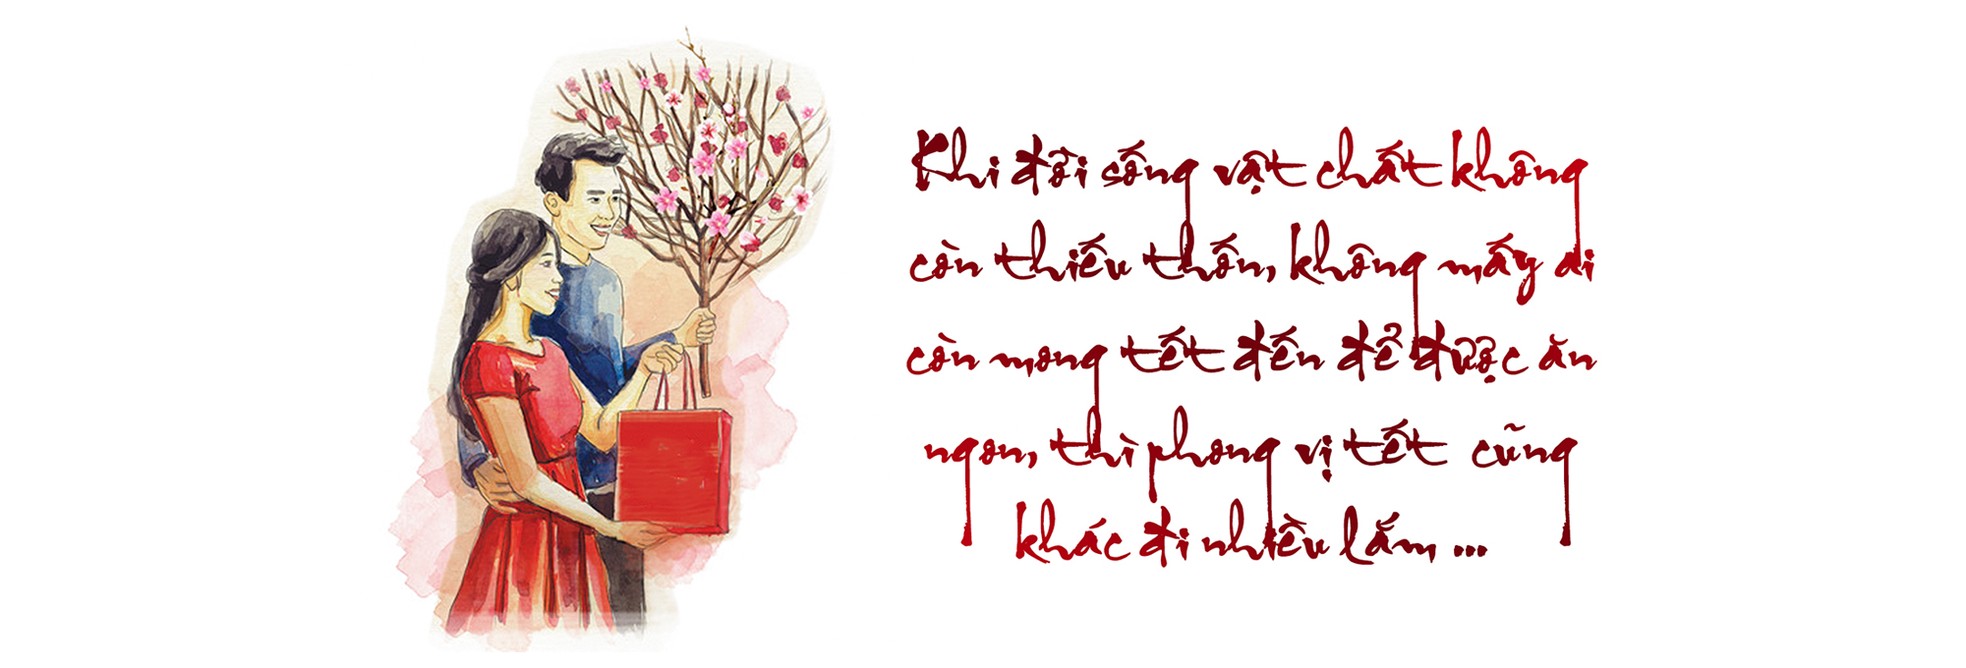 Khi đời sống vật chất không
còn thiếu thốn, không mấy ai
còn mong tết đến để được ăn
ngon, thì phong vị tết cũng
khác đi nhiều lắm ...